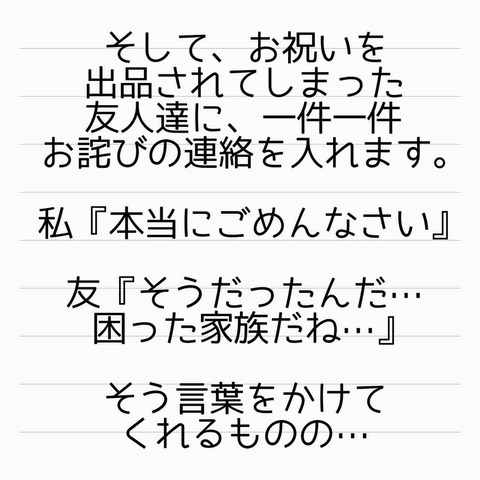 そして、お祝いを
出品されてしまった
友人達に、一件一件
お詫びの連絡を入れます。
私『本当にごめんなさい』
友『そうだったんだ…
困った家族だね…』
そう言葉をかけて
くれるものの…